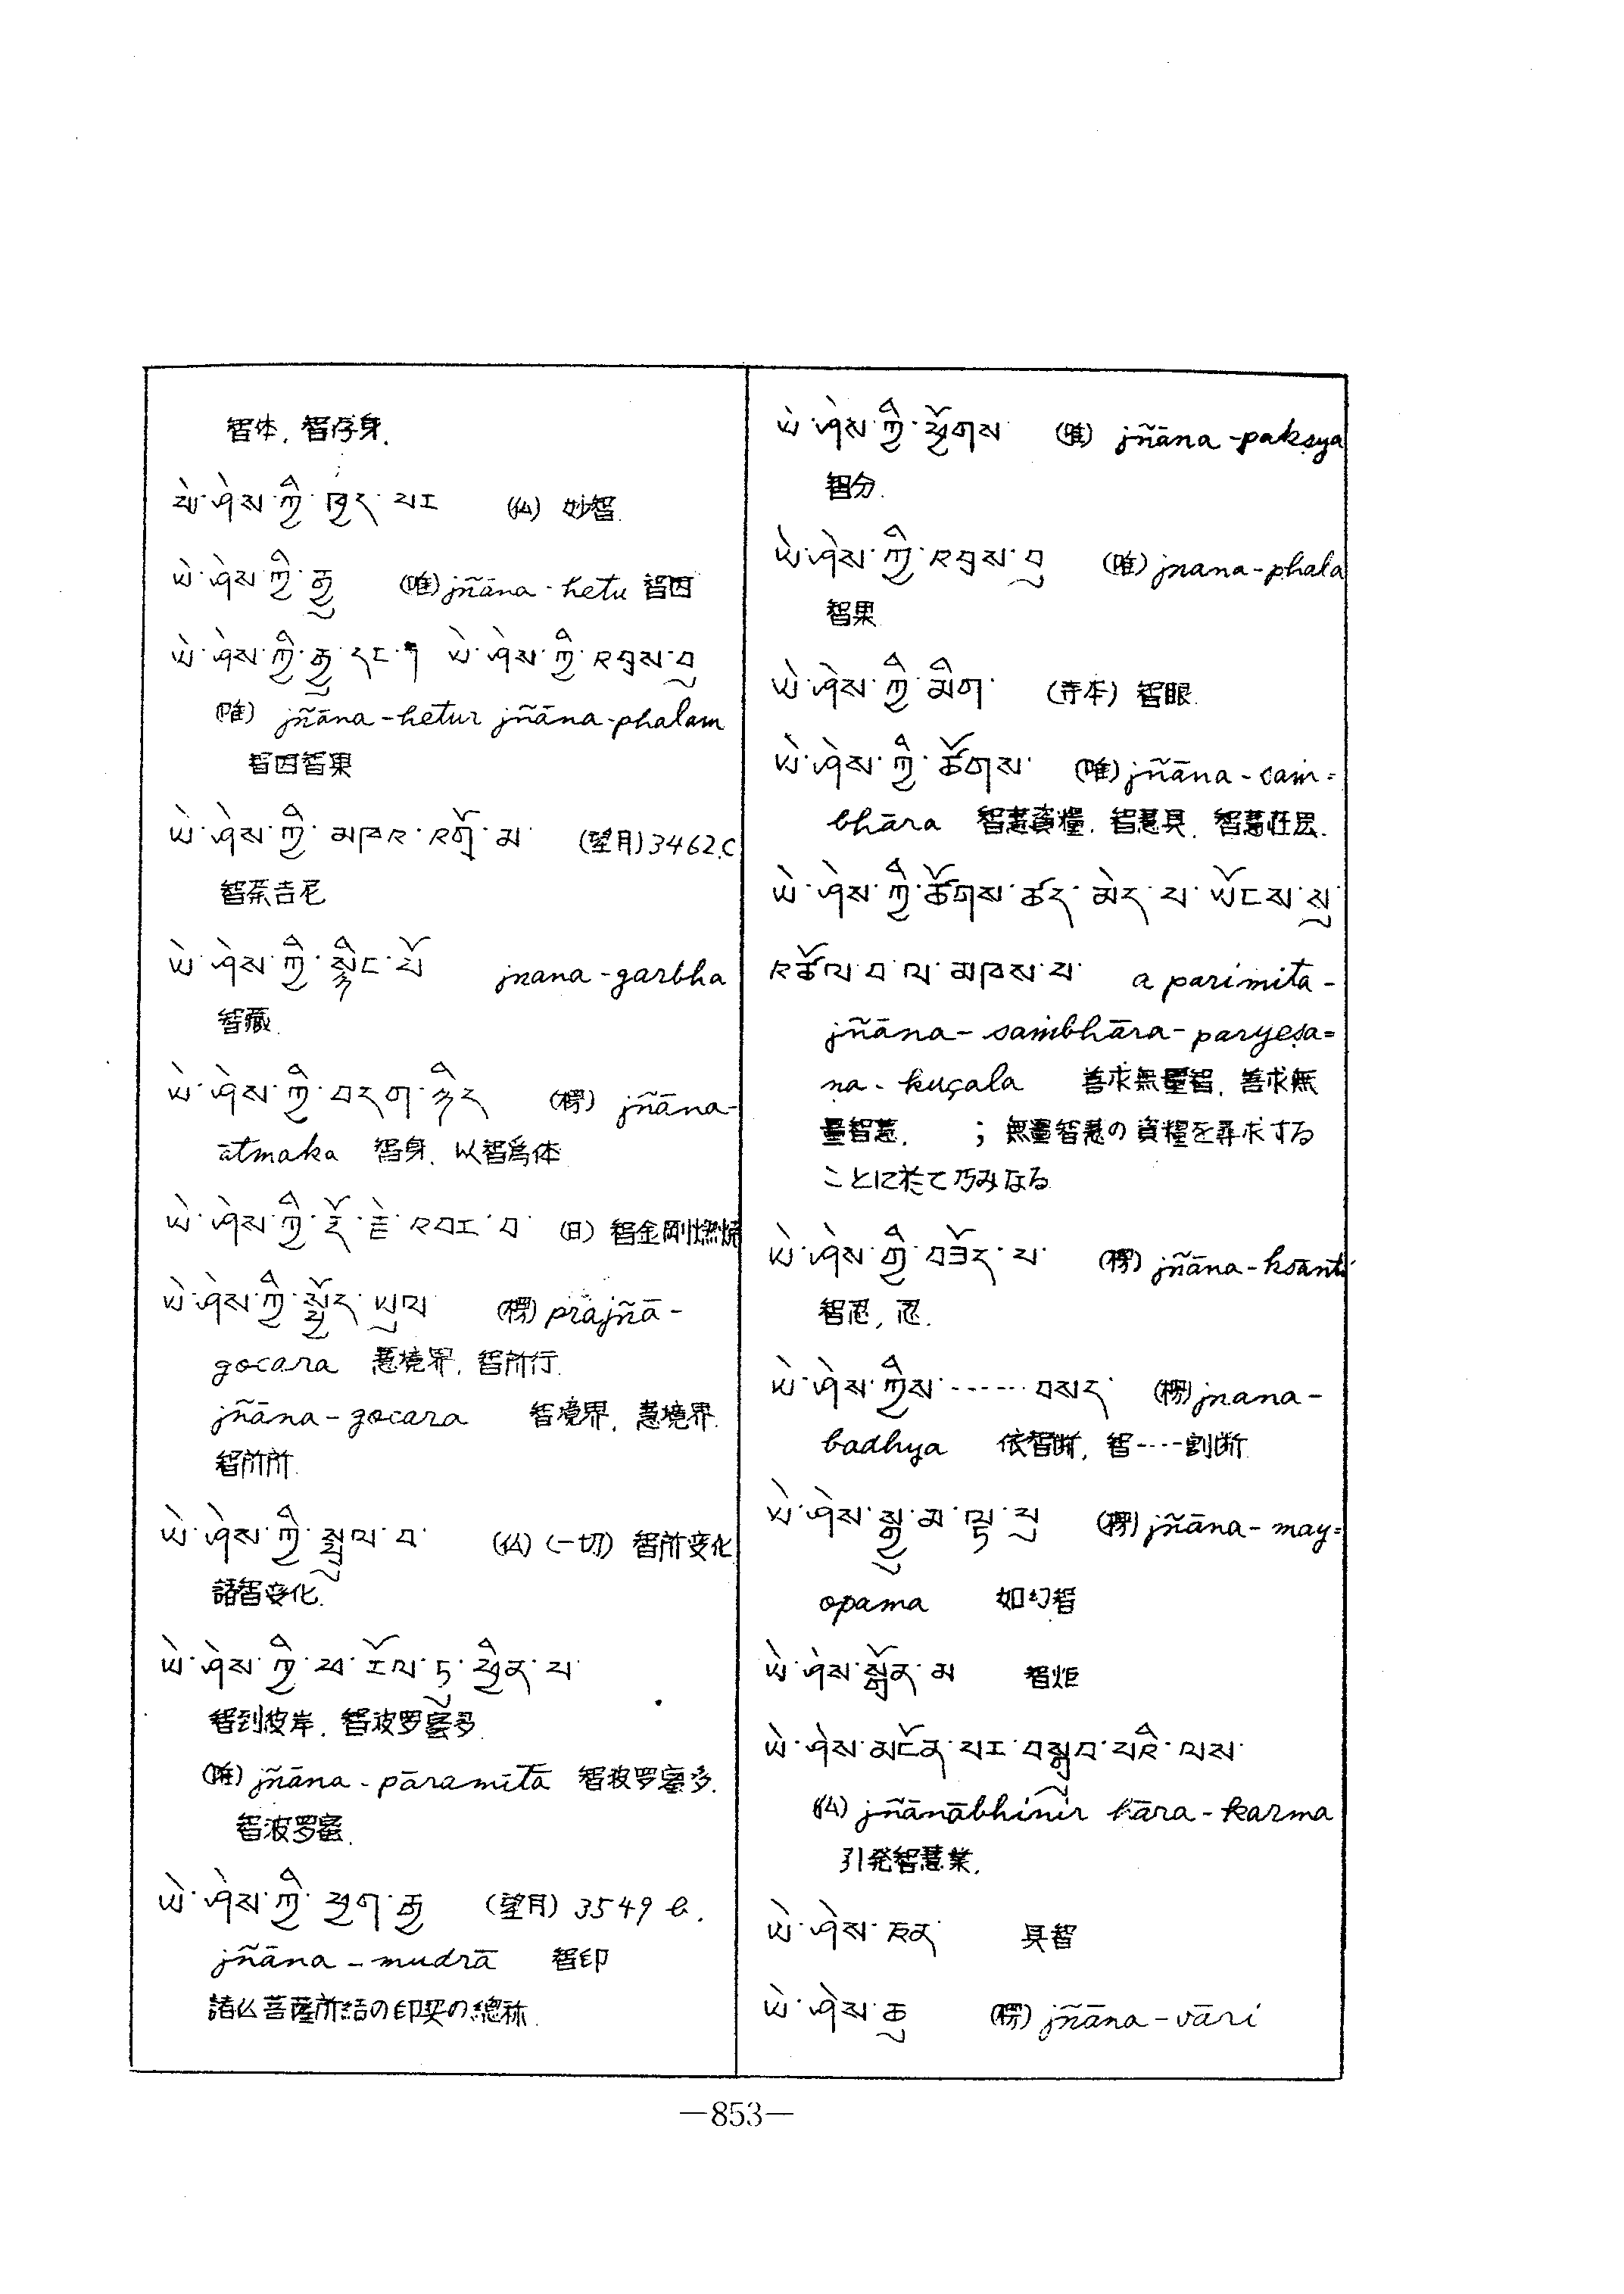 智体, 智存身,
ཡེ་ཤེས་ཀྱི་ཁྱད་པར (仏) 妙智.
ཡེ་ཤེས་ཀྱི་རྒྱུ (唯) jñāna-hetu 智因
ཡེ་ཤེས་ཀྱི་རྒྱུ་དང་། ཡེ་ཤེས་ཀྱི་འབྲས་བུ
(唯) jñāna-hetur jñāna-phalam
智因智果
ཡེ་ཤེས་ཀྱི་མཁའ་འགྲོ་མ་ (望月) 3462.c
智荼吉尼
ཡེ་ཤེས་ཀྱི་སྙིང་པོ jnana-garbha
智藏.
ཡེ་ཤེས་ཀྱི་བདག་ཉིད (楞) jñāna-
ātmaka 智身, 以智爲体
ཡེ་ཤེས་ཀྱི་རྡོ་རྗེ་འབར་བ་ (日) 智金剛燃焼
ཡེ་ཤེས་ཀྱི་སྤྱོད་ཡུལ (楞) prajñā-
gocara 慧境界, 智所行.
jñāna-gocara 智境界, 慧境界.
智所所.
ཡེ་ཤེས་ཀྱི་སྤྲུལ་བ་ (仏) (一切) 智所変化
諸智変化.
ཡེ་ཤེས་ཀྱི་ཕ་རོལ་ཏུ་ཕྱིན་པ
智到彼岸, 智波罗蜜多.
(唯) jñāna-pāramitā 智波罗蜜多.
智波罗蜜.
ཡེ་ཤེས་ཀྱི་ཕྱག་རྒྱ (望月) 3549 b.
jñāna-mudrā 智印
諸仏菩薩所結の印契の總称.
ཡེ་ཤེས་ཀྱི་ཕྱོགས་ (唯) jñāna-pakṣya
智分.
ཡེ་ཤེས་ཀྱི་འབྲས་བུ (唯) jnana-phala
智果
ཡེ་ཤེས་ཀྱི་མིག་ (寺本) 智眼.
ཡེ་ཤེས་ཀྱི་ཚོགས་ (唯) jñāna-saṁ=
bhāra 智慧資糧, 智慧具, 智慧荘厳.
ཡེ་ཤེས་ཀྱི་ཚོགས་ཚད་མེད་པ་ཡོངས་སུ་
འཚོལ་བ་ལ་མཁས་པ་ a parimita-
jñāna-saṁbhāra-paryeṣa=
ṇa-kuçala 善求無量智, 善求無
量智慧, ; 無量智慧の資糧を尋求する
ことに於て巧みなる
ཡེ་ཤེས་ཀྱི་བཟོད་པ་ (楞) jñāna-ksānti
智忍, 忍.
ཡེ་ཤེས་ཀྱིས་……བསད་ (楞) jnana-
badhya 依智断, 智……割断.
ཡེ་ཤེས་སྒྱུ་མ་ལྟ་བུ (楞) jñāna-may=
opama 如幻智
ཡེ་ཤེས་སྒྲོན་མ 智炬
ཡེ་ཤེས་མངོན་པར་བསྒྲུབ་པའི་ལས་
(仏) jñānābhinir hāra-karma
引発智慧業.
ཡེ་ཤེས་ཅན་ 具智
ཡེ་ཤེས་ཆུ (楞) jñāna-vāri
—853—